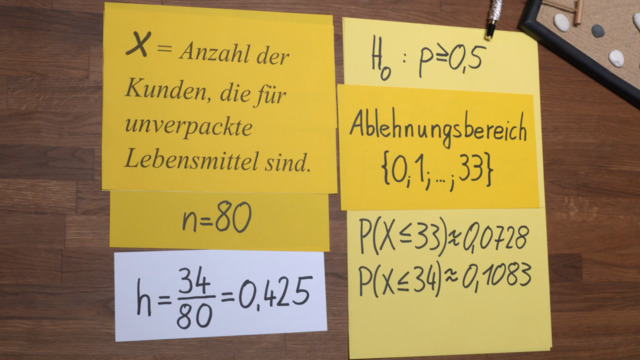 X = Anzahl der
Kunden, die für
unverpackte
Lebensmittel sind.
n=80
h = 34/80 = 0,425
H₀ : p≥0,5
Ablehnungsbereich
{0; 1; ...; 33}
P(X≤33)≈0,0728
P(X≤34)≈0,1083